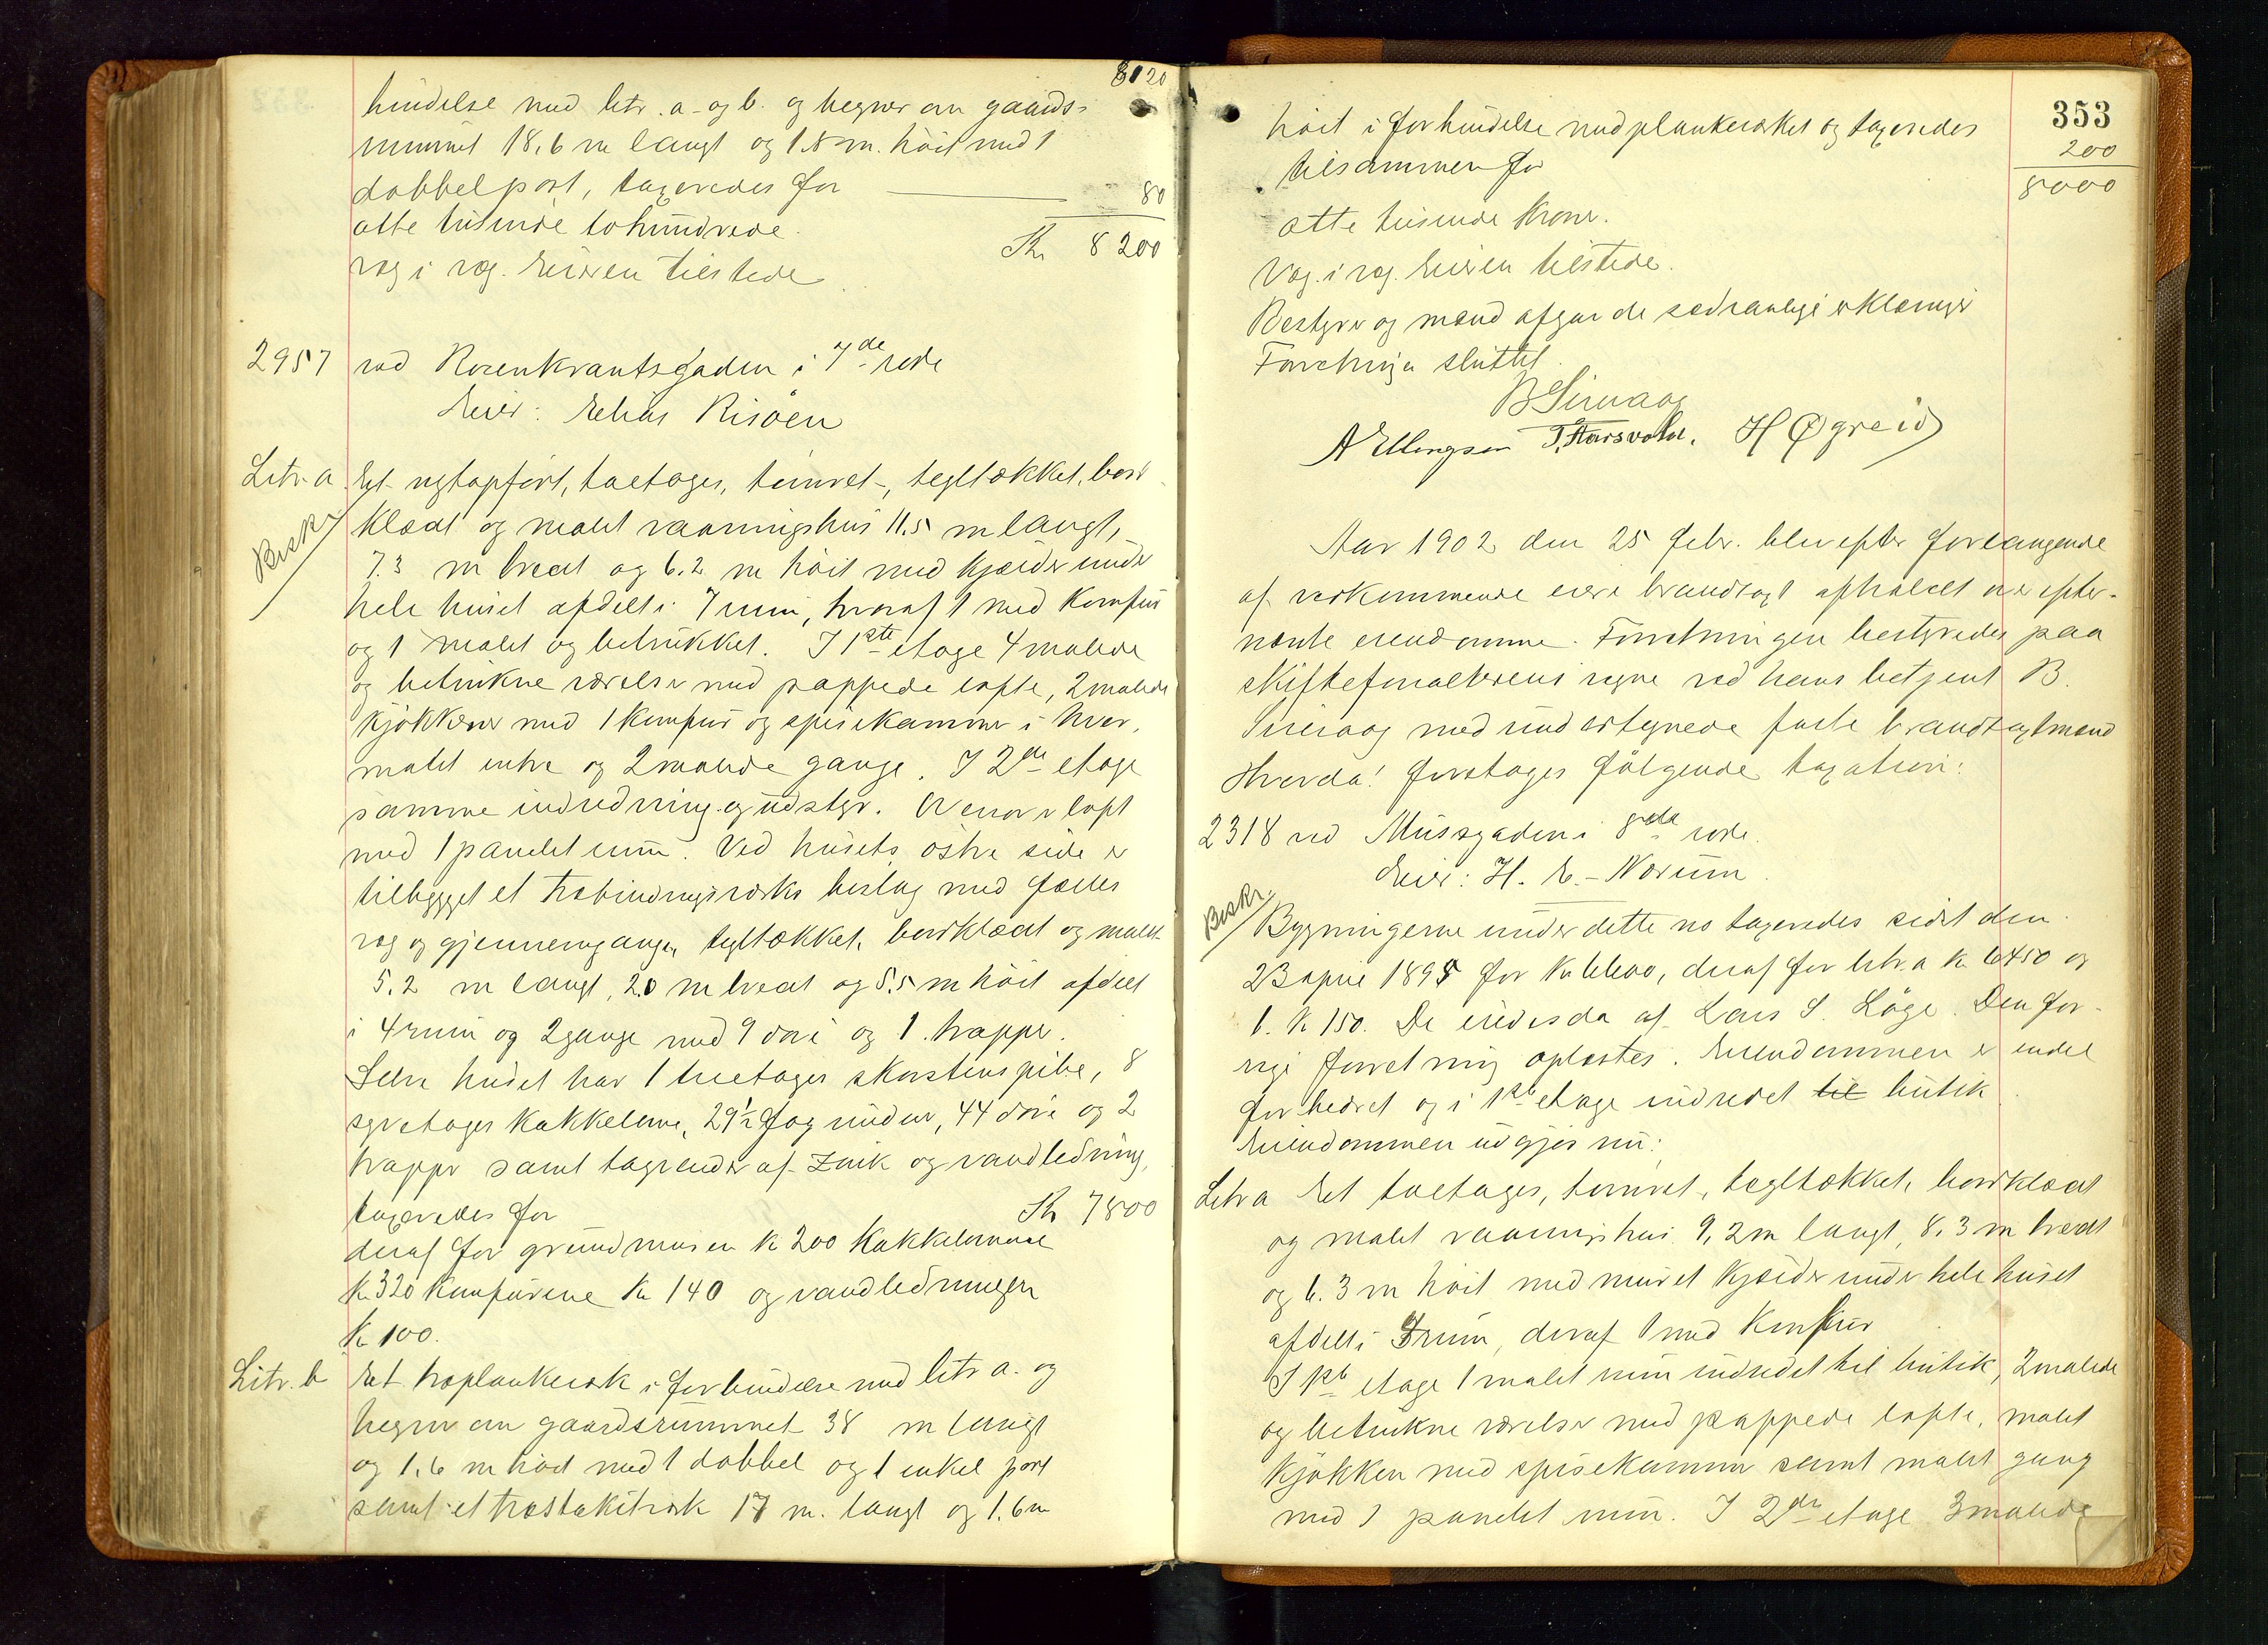 8120
bindelse med litr. a- og b. og hegner om gaards-
rummet 18,6 m langt og 1.8 m. höit med 1
dobbelport, taxeredes for 80
otte tusinde tohundrede. Kr 8200
væg i væg. Eieren tilstede
2957 ved Rosenkrantsgaden i 7de rode
Eier: Elias Risöen
Litr. a Et nyt opfört, toetages, tömret-, tegltækket, bord
Beskr.
klædt og malet vaaningshus 11.5 m langt,
7.3 m bredt og 6.2 m höit med kjælder under
hele huset afdelt i 7 rum, hvoraf 1 med komfur
og 1 malet og betrukket. I 1ste etage 4 malede
og betrukne værelser med pappede lofte, 2 malede
kjökkener med 1 komfur og spisekammer i hver,
malet entre og 2 malede gange. I 2den etage
samme indredning og udstyr. Ovenover loft
med 1 panelet rum. Ved husets östre side er
tilbygget et træbindingsværks beslag med fælles
væg og gjennemgange, tegltækket, bordklædt og malet
5.2 m langt, 2.0 m bredt og 5.5 m höit afdelt
i 4 rum og 2 gange med 9 döre og 1 trappe.
Selve huset har 1 treetages skorstenspibe, 8
syvetages kakkelovne, 29½ fag vinduer, 44 döre og 2
trapper samt tagrender af zink og vandledning,
taxeredes for Kr 7800
deraf for grundmuren k 200 kakkelovnene
Kr 320 komfurene Kr 140 og vandledningen
Kr 100.
Litr. b Et træplankeværk i forbindelse med litr a. og
hegner om gaardsrummet 38 m langt
og 1.6 m höit med 1 dobbel og 1 enkel port
samt et træstakitværk 17 m. langt og 1.6 m
353
höit i forbindelse med plankeværket og taxeredes
tilsammen for 200
otte tusinde Kroner. 8000
Væg i væg. Eieren tilstede.
Bestyrer og mænd afgav de sædvanlige erklæringer
Forretningen sluttet.
B Sirevaag
A Ellingsen T. Aarsvold. H Øgreid
Aar 1902 den 25 febr. blev efter forlangende
af vedkommende eiere brandtaxt afholdt over efter-
nævnte eiendomme. Forretningen bestyredes paa
skifteforvalterens vegne ved hans betjent B.
Sirevaag med undertegnede faste brandtaxtmænd
Hvorda! foretages fölgende taxation:
2318 ved Mussgaden i 8de rode.
Eier: H. E. Norum
Beskr.
Bygningerne under dette no taxeredes sidst den
23 april 1895 for Kr 6600, deraf for litr. a kr 6450 og
b. Kr 150. De eiedes da af Lars S. Löge. Den for-
rige forretning oplæstes. Eiendommen er endel
forbedret og i 1ste etage indredet til butik
Eiendommen udgjör nu:
Litr a Et toetages, tömret, tegltækket, bordklædt
og malet vaaningshus 9,2 m langt, 8.3 m bredt
og 6.3 m höit med muret kjælder under hele huset
afdelt i rum, deraf 1 med komfur
I 1ste etage 1 malet rum indredet til butik, 2 malede
og betrukne værelser med pappede lofte, malet
kjökken med spisekammer samt malet gang
med 1 panelet rum. I 2den etage 3 malede